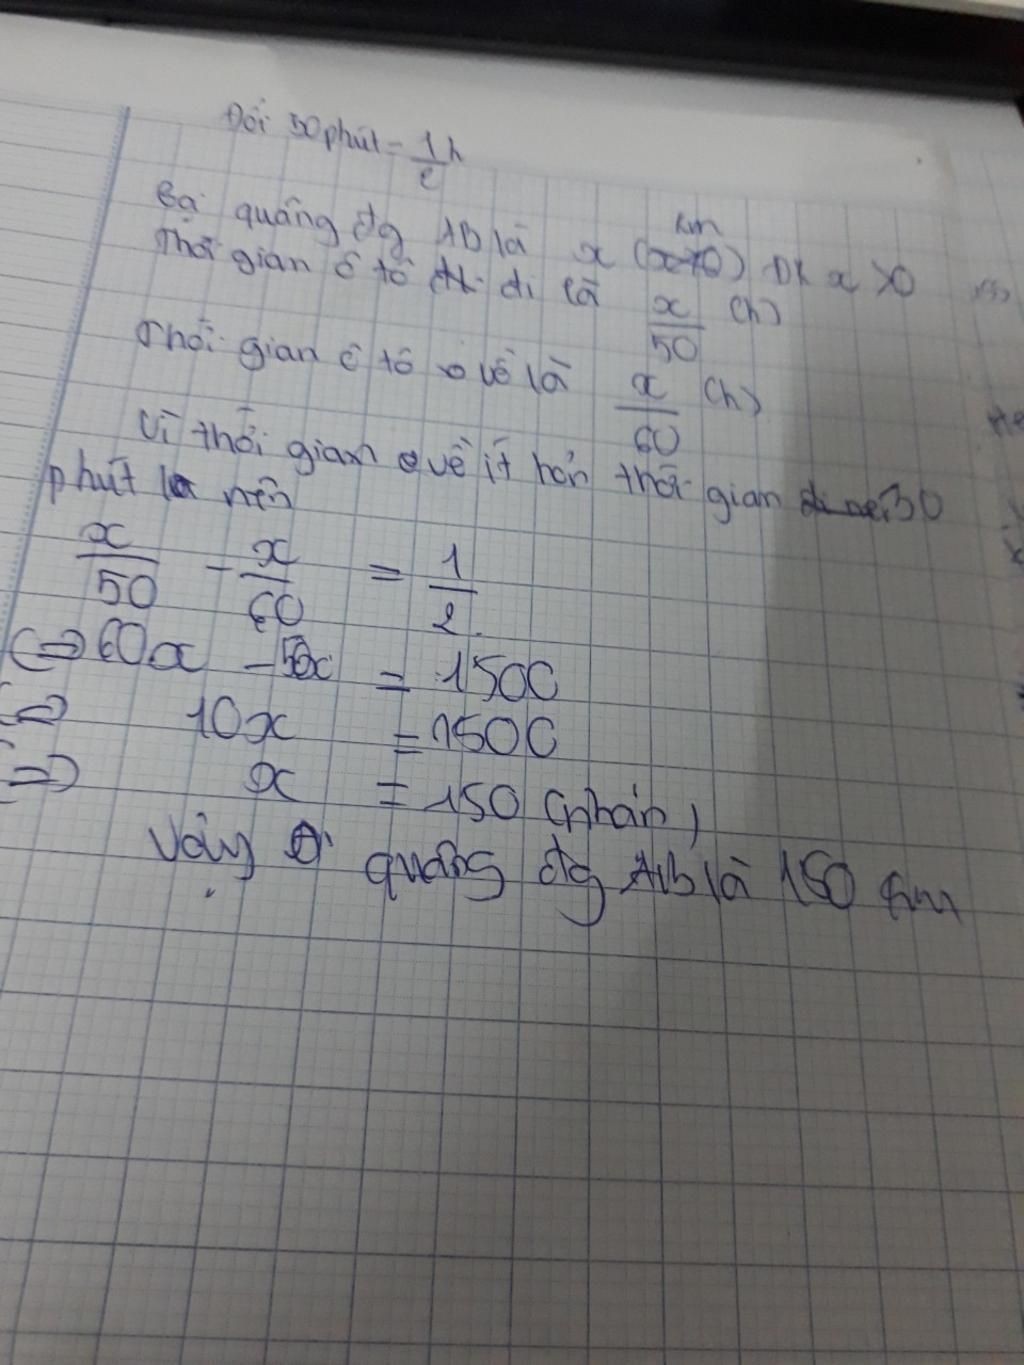 Đổi 30 phút = 1/2 h
Gọi quãng đg AB là x (km) ĐK x > 0
Thời gian ô tô đi là x/50 (h)
Thời gian ô tô về là x/60 (h)
Vì thời gian về ít hơn thời gian đi 30
phút nên
x/50 - x/60 = 1/2
<=> 60x - 50x = 1500
<=> 10x = 1500
<=> x = 150 (nhận)
Vậy quãng đg AB là 150 km